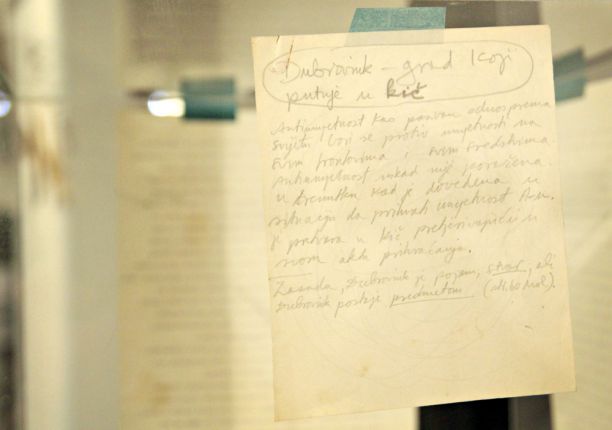 Dubrovnik – grad koji
putuje u kič
Antiumjetnost kao pravac odnosa prema
svijetu bori se protiv umjetnosti na
svim frontovima i svim sredstvima
Antiumjetnost nikad nije poražena
u trenutku kad je dovedena u
situaciju da prihvati umjetnost. Ona
je pretvara u kič pretjerivajući u
svom aktu prihvaćanja.
Zasada, Dubrovnik je pojam, stvar, ali
Dubrovnik postaje predmetom